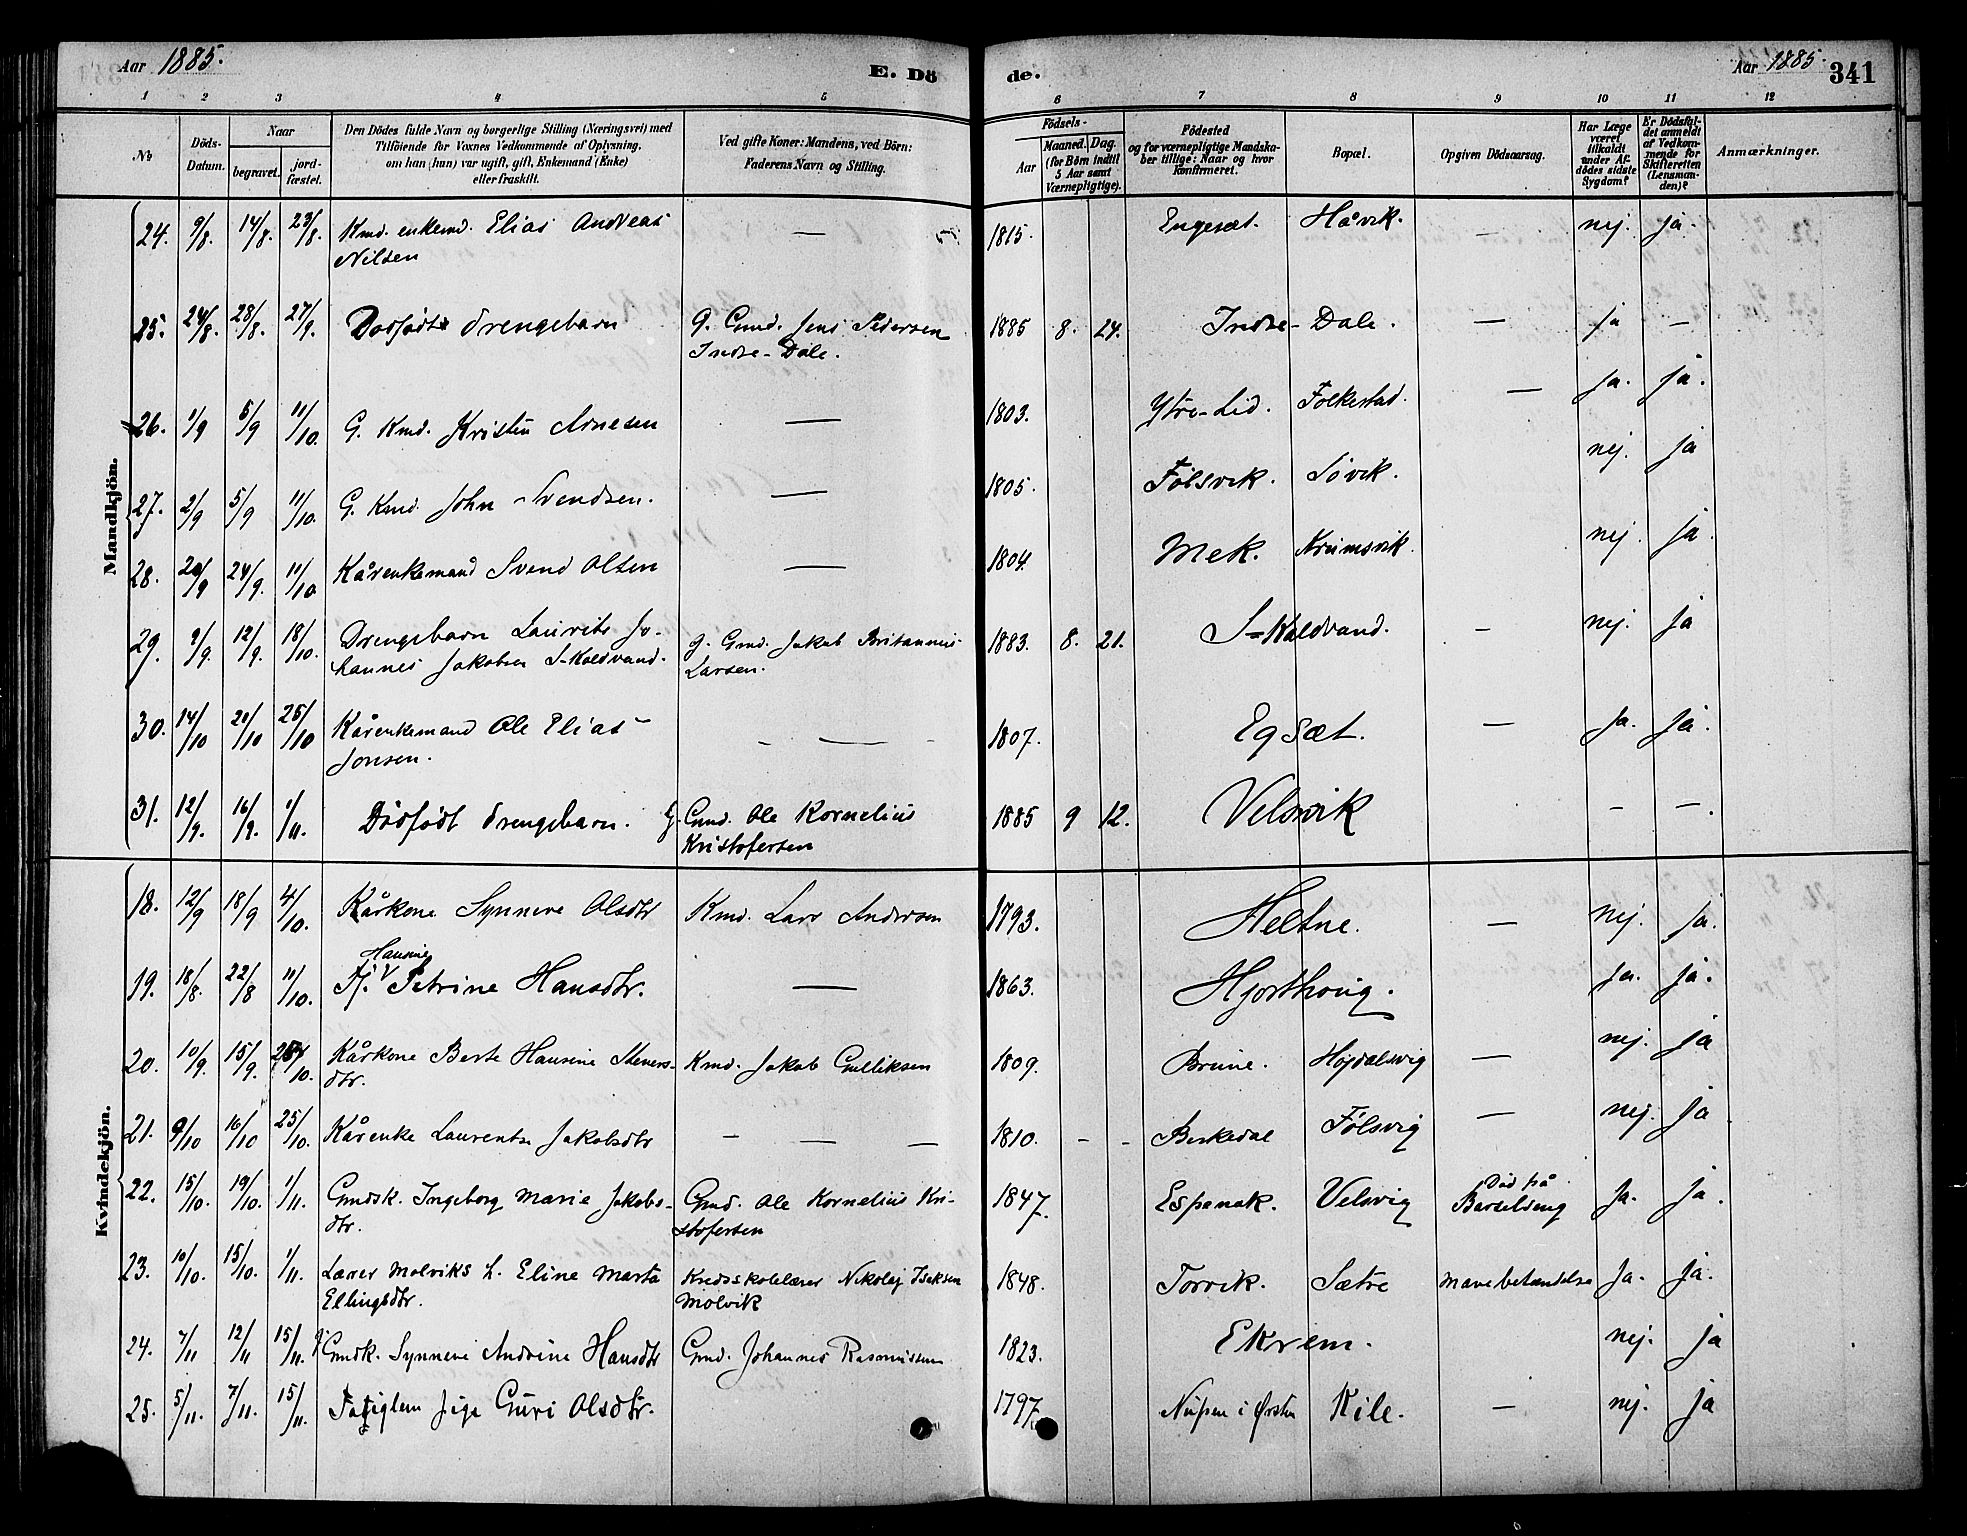 Aar 1885. E. Dö de. Aar 1885. 341
1 2 3 4 5 6 7 8 9 10 11 12
No
Döds-Datum.
Naar
begravet.
jord-fæstet.
Den Dödes fulde Navn og borgerlige Stilling (Næringsvei) med
Tilföiende for Voxnes Vedkommende af Oplysning,
om han (hun) var ugift, gift, Enkemand (Enke)
eller fraskilt.
Ved gifte Koner: Mandens, ved Börn:
Faderens Navn og Stilling.
Födsels-
Aar
Maaned. Dag.
(for Börn indtil
5 Aar samt
Værnepligtige).
Födested
og for værnepligtige Mandska-
ber tillige: Naar og hvor
konfirmeret.
Bopæl.
Opgiven Dödsaarsag.
Har Læge
været
tilkaldt
under Af-
dödes sidste
Sygdom?
Er Dödsfal-
det anmeldt
af Vedkom-
mende for
Skifteretten
(Lensman-
den)?
Anmærkninger.
Mandkjön.
24. 9/8. 14/8. 23/8. Kmd. enkemd. Elias Andreas — 1815. Engesæt. Håvik. nej. ja.
Nilsen
25. 24/8. 28/8. 27/9. Dødfødt drengebarn G. Gmd. Jens Pedersen 1885 8. 24. Indre-Dale. — ja —
Indre-Dale.
26. 1/9 5/9 11/10. G. Kmd. Kristen Arnesen — 1803. Ytre-Lid. Folkestad. — ja. ja.
27. 2/9 5/9 11/10. G. Kmd. John Svendsen. — 1805. Følsvik. Løvik. nej. ja
28. 20/9 24/9. 11/10. Kårenkemand Svend Olsen — 1804. Mek. Krumsvik. nej. ja.
29. 9/9. 12/9. 18/10. Drengebarn Laurits Jo- g. Gmd. Jakob Britannus 1883. 8. 21. I-Koldvand. — nej. ja
hannes Jakobsen I-Koldvand. Larsen.
30. 14/10 20/10 25/10 Kårenkemand Ole Elias — 1807. Egsæt. — ja. ja.
Jonsen.
31. 12/9. 16/9. 1/11. Dødfødt drengebarn. G. Gmd. Ole Kornelius 1885 9 12. Velsvik — —.
Kristofersen
Kvindekjön.
18. 12/9 18/9 4/10. Kårkone Synneve Olsdtr Kmd. Lars Andersen 1793. Heltne. — nej. ja.
Hansine
19. 18/8. 22/8 11/10. Petrine Hansdtr. — 1863. Hjorthoug. ja. ja.
20. 10/9. 15/9. 25/10. Kårkone Berte Hansine Steners- Kmd. Jakob Gulliksen 1809. Brune. Højdalsvig — nej. ja
dtr.
21. 9/10 16/10 25/10. Kårenke Laurentse Jakobsdtr — — — 1810. - - Berkedal Følsvig — nej. ja
22. 15/10. 19/10. 1/11. Gmdsk. Ingeborg Marie Jakobs- Gmd. Ole Kornelius Kri- 1847. Espenak. Velsvig Død på ja. ja.
dtr. stofersen Barselseng
23. 10/10. 15/10. 1/11. Lærer Molviks h. Eline Marta Kredsskolelærer Nikolaj Isaksen 1848. Torvik. Sætre Mavebetændelse ja. ja.
Ellingsdtr. Molvik
24. 7/11 12/11 15/11. Gmdk. Synneve Andrine Hansdtr Gmd. Johannes Rasmussen 1823. Ekrem. nej. ja
25. 5/11. 7/11. 15/11. Fattiglem pige Guri Olsdtr. 1797. i Ørsten Kile. — nej. ja